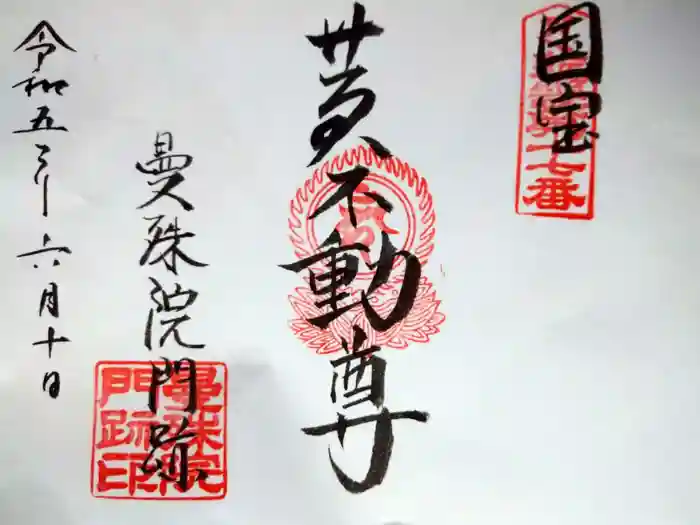 国宝
黄不動尊
曼殊院門跡
令和五年六月十日
十七番
曼殊院
門跡印